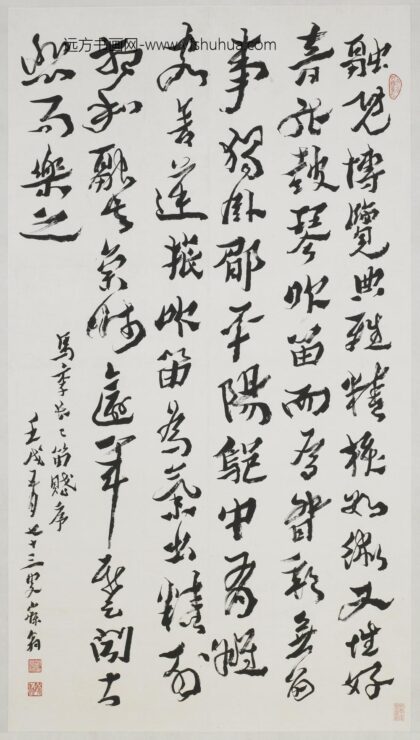 远方书画网-www.yfshuhua.com
融既博覽典雅精核數術又性好
音能鼓琴吹笛而為督郵無留
事獨臥郿平陽鄔中有雒
客舍逆旅吹笛為氣出精列
相和融去京師踰年暫聞甚
悲而樂之
馬季長長笛賦序
壬戌五月七十三叟寐翁